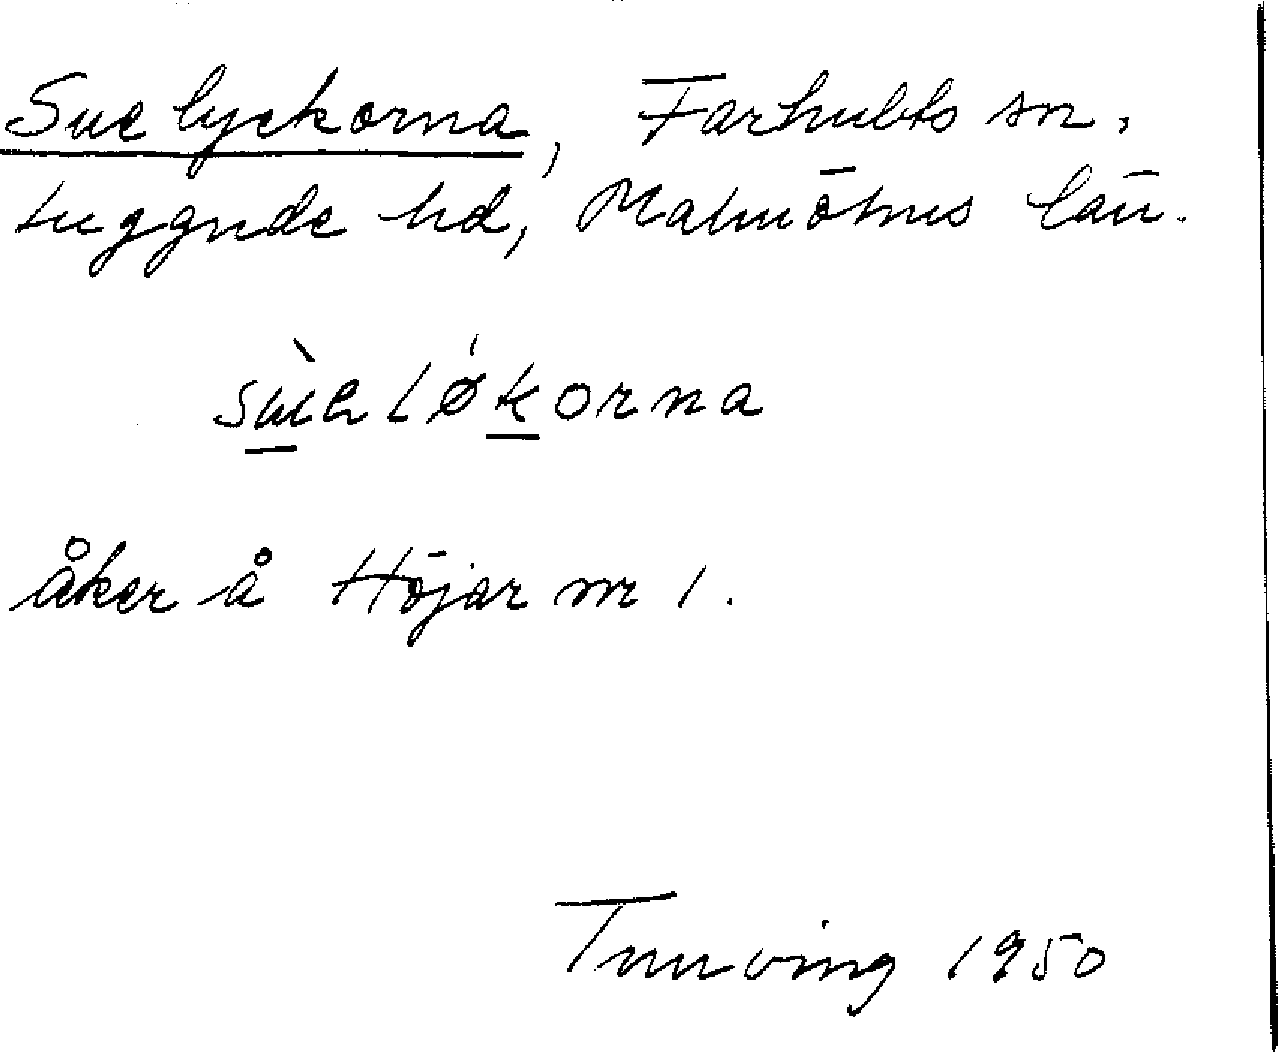 Suelyckorna, Farhults sn,
Luggude hd, Malmöhus län.
åker å Höjar nr 1.
Tunving 1950